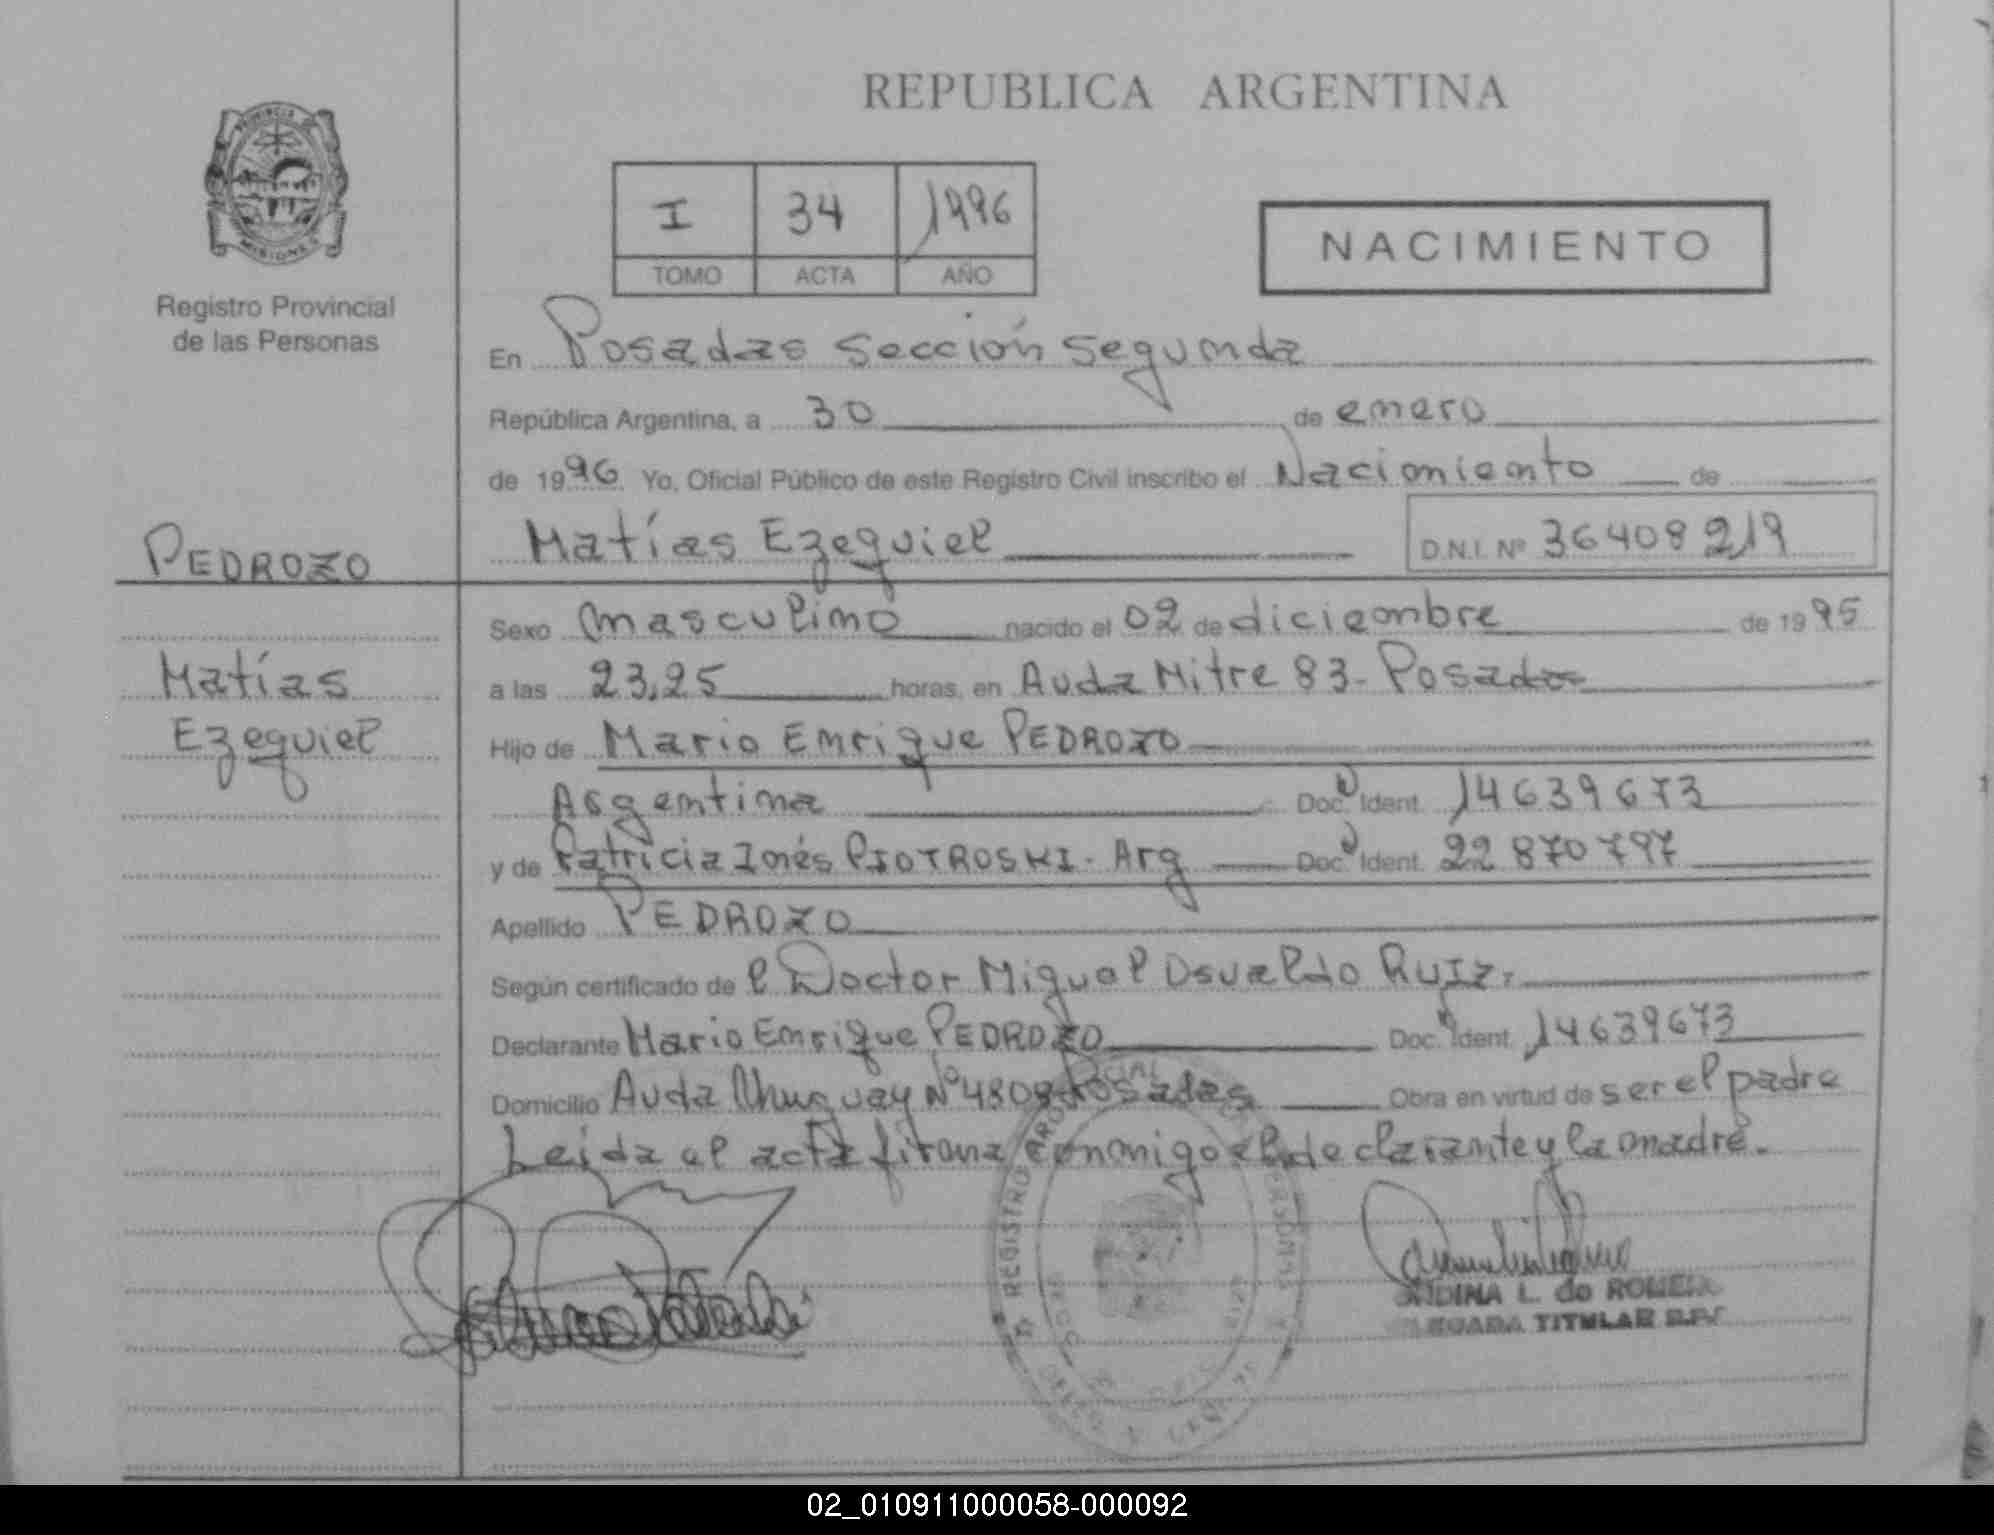 REPUBLICA ARGENTINA
PROVINCIA DE
MISIONES
Registro Provincial
de las Personas
I 34 1996
TOMO ACTA AÑO
NACIMIENTO
En Posadas Sección Segunda
República Argentina, a 30 de enero
de 1996 Yo, Oficial Público de este Registro Civil inscribo el Nacimiento de
PEDROZO Matías Ezequiel D.N.I. Nº 36408219
Sexo masculino nacido el 02 de diciembre de 1995
Matías a las 23,25 horas, en Avda Mitre 83 - Posadas
Ezequiel Hijo de Mario Enrique PEDROZO
Argentina Doc. Ident. 14639673
y de Patricia Inés PIOTROSKI - Arg Doc. Ident. 22870797
Apellido PEDROZO
Según certificado de l Doctor Miguel Osvaldo RUIZ,
Declarante Mario Enrique PEDROZO Doc. Ident. 14639673
Domicilio Avda Uruguay Nº 4808 Posadas Obra en virtud de ser el padre
Leída el acta firma conmigo el declarante y la madre.
REGISTRO PERSONAS
L. de
TITULAR
02_010911000058-000092